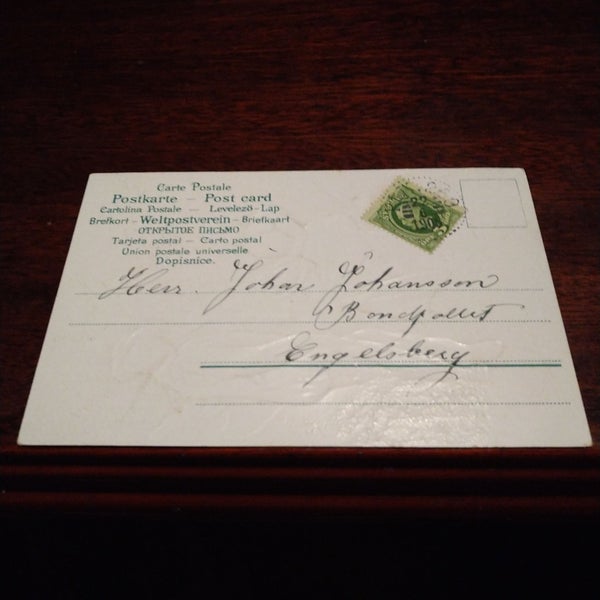 Carte Postale
Postkarte - Post card
Cartolina Postale - Levelező-Lap
Brefkort - Weltpostverein - Briefkaart
ОТКРЫТОЕ ПИСЬМО
Tarjeta postal - Carto postal
Union postale universelle
Dopisnice.
Herr. Johan Johansson
Engelsberg